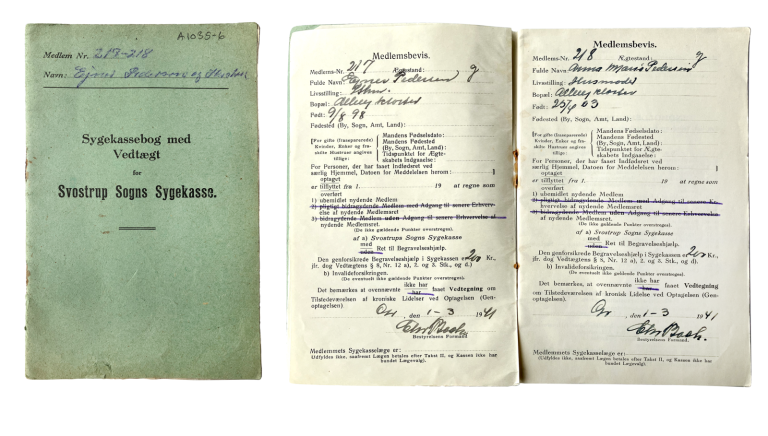 A1035-6
Medlem Nr. 217-218
Navn: Ejnar Pedersen og Hustru
Sygekassebog med
Vedtægt
for
Svostrup Sogns Sygekasse.
Medlemsbevis.
Medlems-Nr. 217 Ægtestand: g
Fulde Navn: Ejner Pedersen
Livsstilling:
Bopæl: Alling Kloster
Født: 9/8 98
Fødested (By, Sogn, Amt, Land):
For gifte (fraseparerede) Kvinder, Enker og fraskilte Hustruer angives tillige:
Mandens Fødselsdato:
Mandens Fødested
(By, Sogn, Amt, Land):
Tidspunktet for Ægteskabets Indgaaelse:
For Personer, der har faaet Indføderet ved
særlig Hjemmel, Datoen for Meddelelsen herom:
optaget
er tilflyttet fra 1. 19 at regne som
overført
1) ubemidlet nydende Medlem
2) pligtigt bidragydende Medlem med Adgang til senere Erhvervelse
af nydende Medlemsret
3) bidragydende Medlem uden Adgang til senere Erhvervelse af
nydende Medlemsret.
(De ikke gældende Punkter overstreges).
af a) Svostrups Sogns Sygekasse
med
uden
Ret til Begravelseshjælp.
Den genforsikrede Begravelseshjælp i Sygekassen er 200 Kr.,
jfr. dog Vedtægtens § 8, Nr. 12 a), 2. og 3. Stk., og d.)
b) Invalideforsikringen.
(De eventuelt ikke gældende Punkter overstreges).
Det bemærkes at ovennævnte ikke har
har
faaet Vedtegning om
Tilstedeværelsen af kroniske Lidelser ved Optagelsen (Genoptagelsen).
Ow, den 1-3 1941
Chr Bach.
Bestyrelsens Formand.
Medlemmets Sygekasselæge er:
(Udfyldes ikke, saafremt Lægen betales efter Takst II, og Kassen ikke har
bundet Lægevalg).
Medlemsbevis.
Medlems-Nr. 218 Ægtestand: g
Fulde Navn: Anna Marie Pedersen
Livsstilling: Husmoder
Bopæl: Alling Kloster
Født: 03
Fødested (By, Sogn, Amt, Land):
For gifte (fraseparerede) Kvinder, Enker og fraskilte Hustruer angives tillige:
Mandens Fødselsdato:
Mandens Fødested
(By, Sogn, Amt, Land):
Tidspunktet for Ægteskabets Indgaaelse:
For Personer, der har faaet Indføderet ved
særlig Hjemmel, Datoen for Meddelelsen herom:
optaget
er tilflyttet fra 1. 19 at regne som
overført
1) ubemidlet nydende Medlem
2) pligtigt bidragydende Medlem med Adgang til senere Erhvervelse
af nydende Medlemsret
3) bidragydende Medlem uden Adgang til senere Erhvervelse
af nydende Medlemsret.
(De ikke gældende Punkter overstreges).
af a) Svostrups Sogns Sygekasse
med
uden
Ret til Begravelseshjælp.
Den genforsikrede Begravelseshjælp i Sygekassen er 200 Kr.,
jfr. dog Vedtægtens § 8, Nr. 12 a), 2. og 3. Stk., og d.)
b) Invalideforsikringen.
(De eventuelt ikke gældende Punkter overstreges).
Det bemærkes at ovennævnte ikke har
har
faaet Vedtegning
om Tilstedeværelsen af kroniske Lidelse ved Optagelsen (Genoptagelsen).
Ow, den 1-3 1941
Chr Bach.
Bestyrelsens Formand.
Medlemmets Sygekasselæge er:
(Udfyldes ikke, saafremt Lægen betales efter Takst II, og Kassen ikke har
bundet Lægevalg).